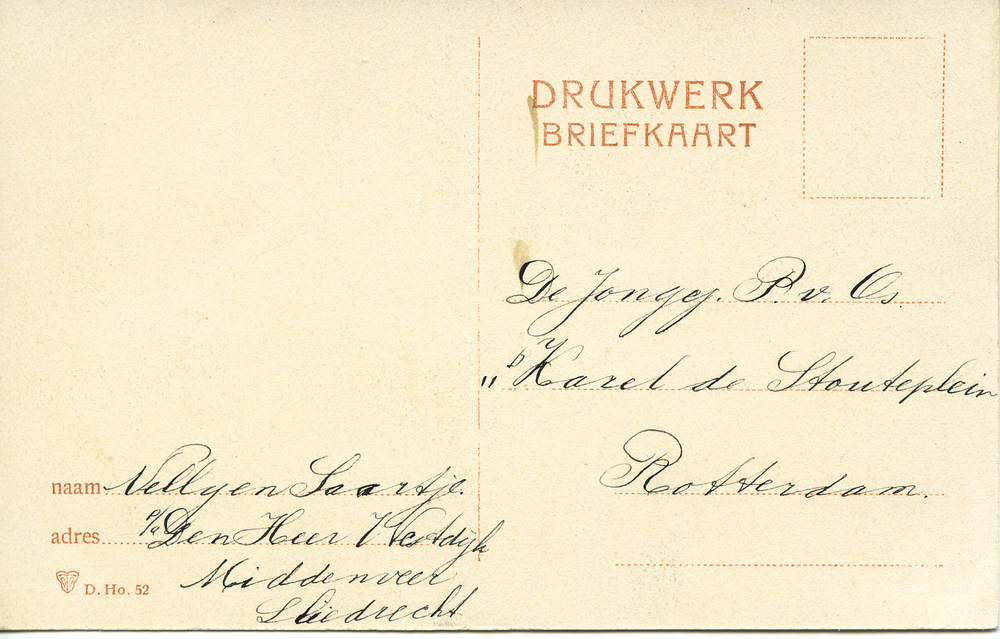 DRUKWERK
BRIEFKAART
De Jongej. P. v. Os.
" b Karel de Stouteplein
Rotterdam.
naam Nelly en Saartje.
adres p/a Den Heer Westdijk
Middenveer
Sliedrecht
D. Ho. 52